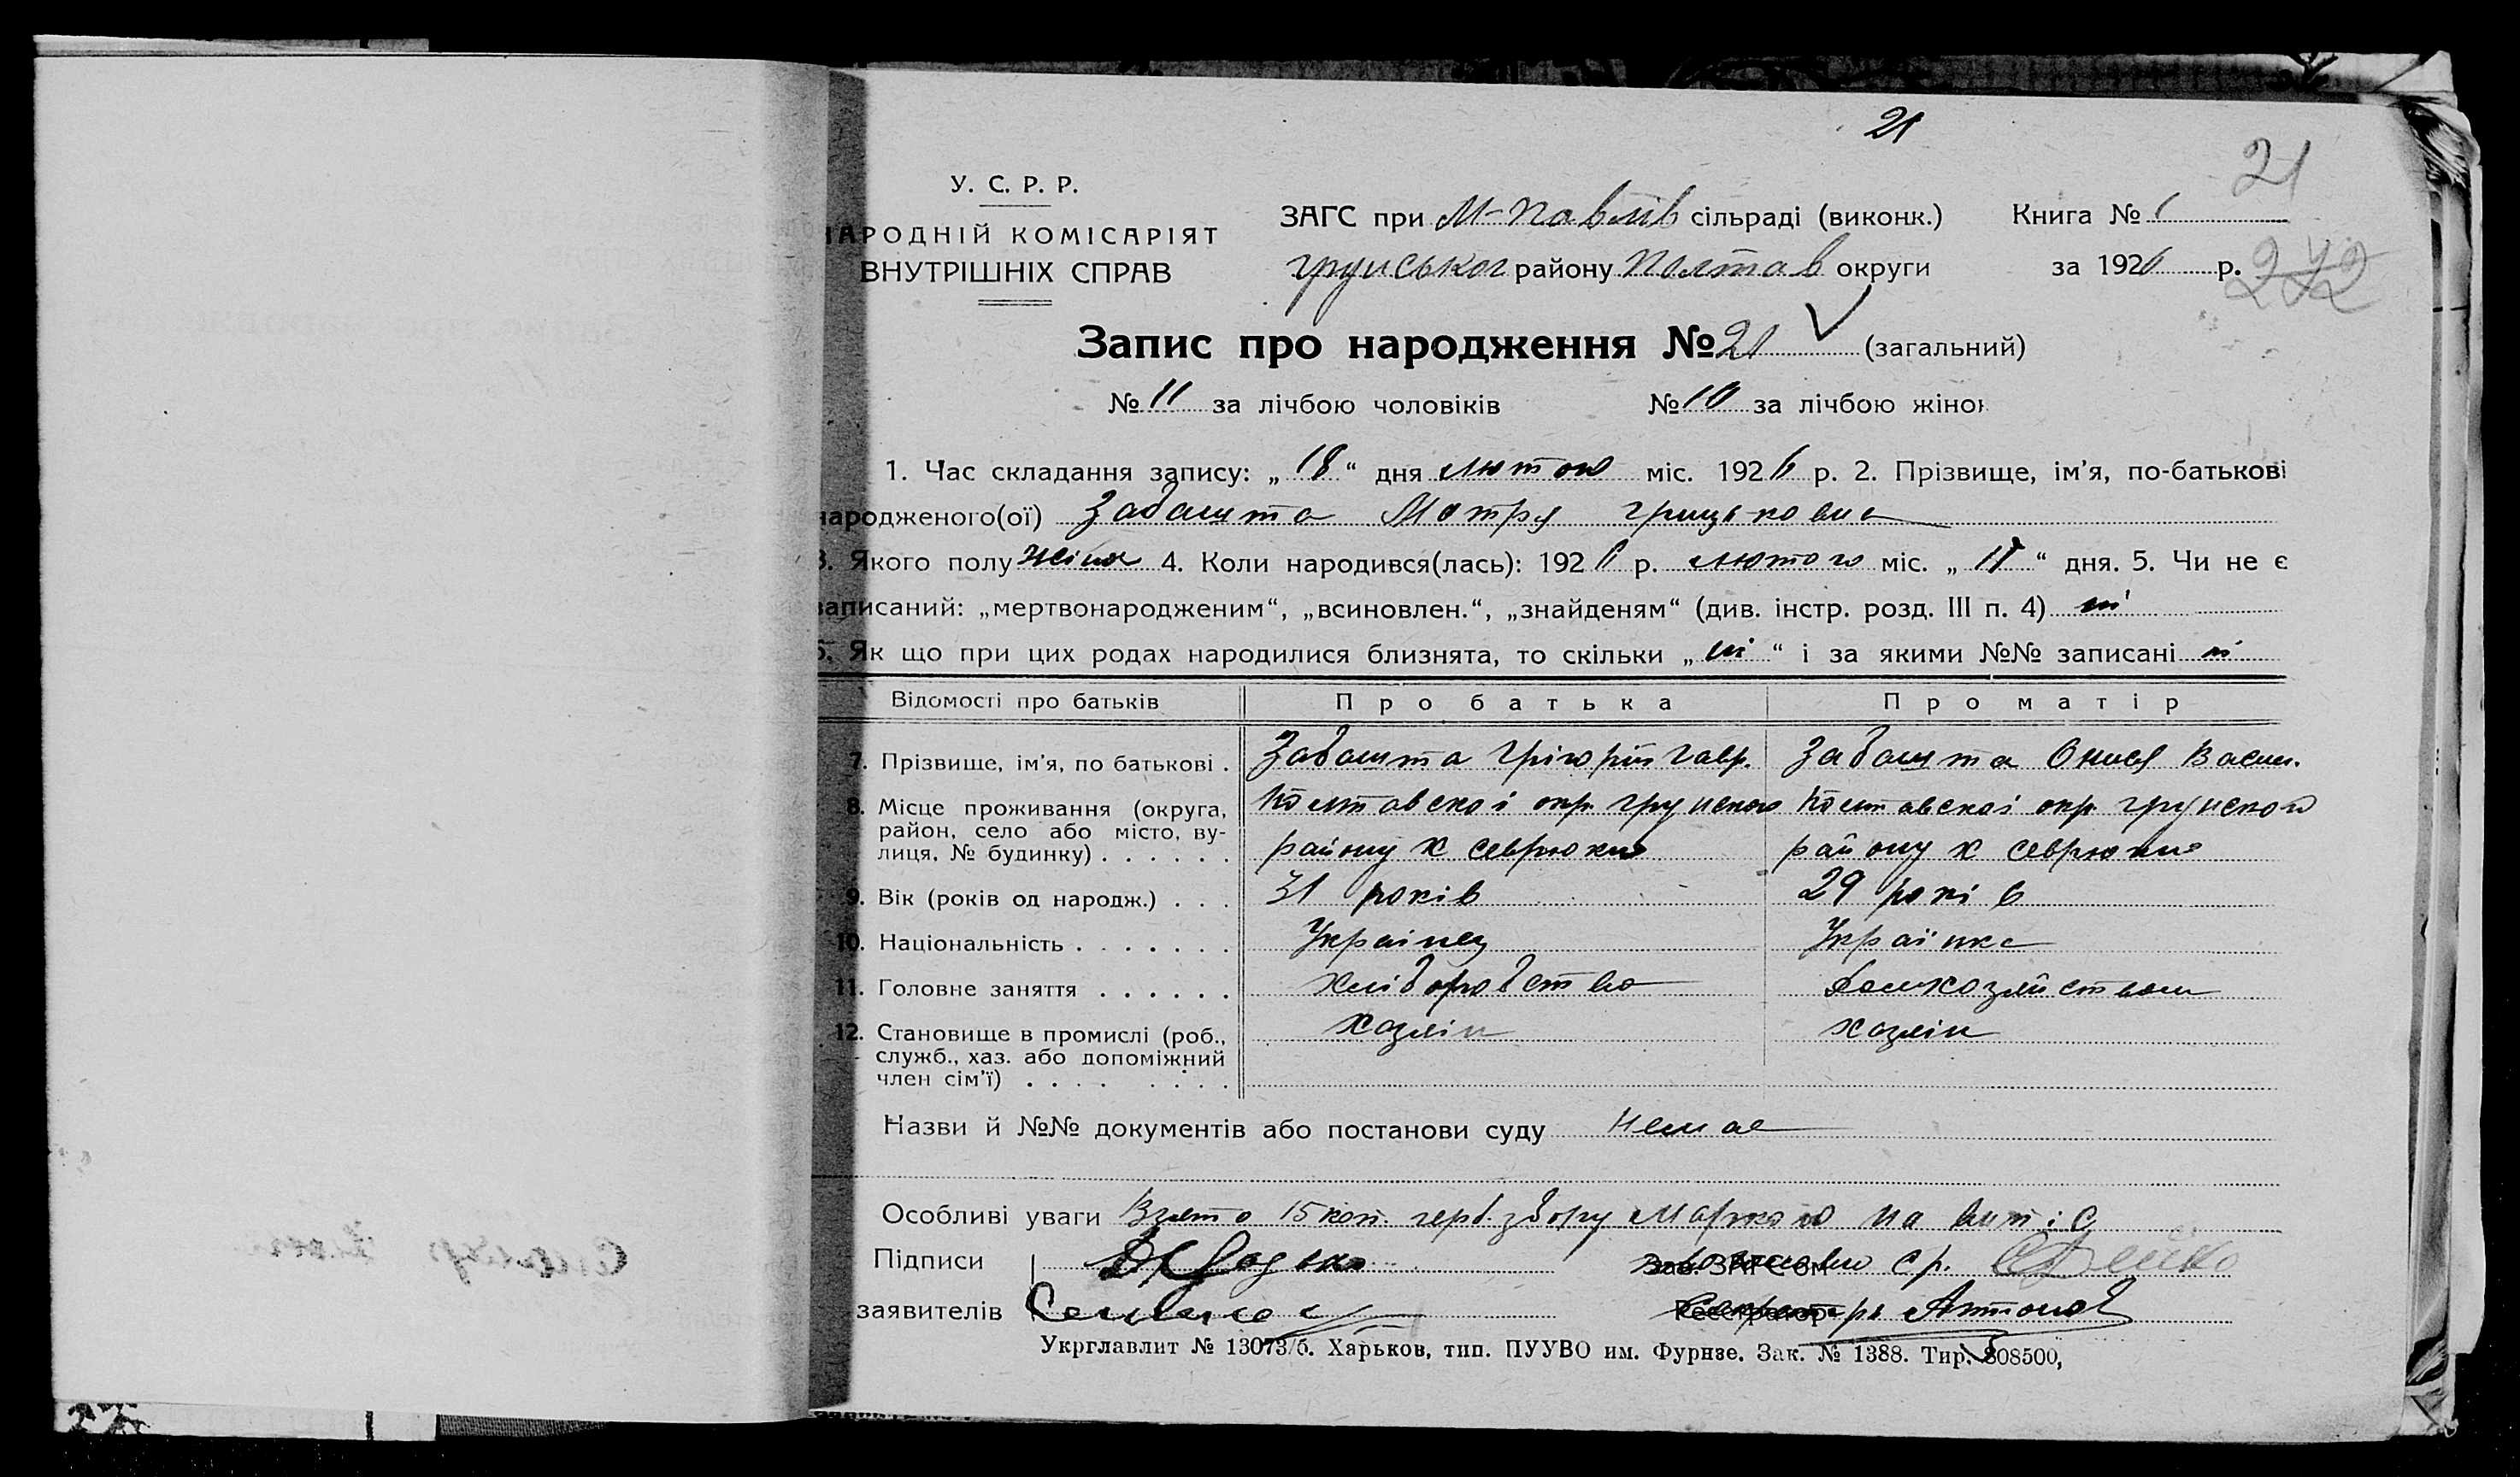 21
21
У. С. Р. Р.
НАРОДНІЙ КОМІСАРІЯТ
ВНУТРІШНІХ СПРАВ
ЗАГС при М-Павлів сільраді (виконк.)
Книга № 1
грунського району Полтав округи
за 1926 р.
242
Запис про народження № 21 (загальний)
№ 11 за лічбою чоловіків № 10 за лічбою жінок
1. Час складання запису: „ 18 “ дня лютого міс. 1926 р. 2. Прізвище, ім’я, по-батькові
народженого(ої) Забашта Мотря грицьковна
3. Якого полу жіноч 4. Коли народився(лась): 1926 р. лютого міс. „ “ дня. 5. Чи не є
записаний: „мертвонародженим“, „всиновлен.“, „знайденям“ (див. інстр. розд. III п. 4) ні
6. Як що при цих родах народилися близнята, то скільки „ ні “ і за якими №№ записані ні
Відомості про батьків Про батька Про матір
7. Прізвище, ім’я, по батькові . Забашта Грігорій Гавр. Забашта Онися Васил.
8. Місце проживання (округа, район, село або місто, вулиця, № будинку) . . . . . .
Полтавскої окр. грунского Полтавскої окр. грунского
району х Севрюки району х Севрюки
9. Вік (років од народж.) . . . 31 років 29 років
10. Національність . . . . . . . Українец Українка
11. Головне заняття . . . . . . хліборобство Домхозяйством
12. Становище в промислі (роб., хозяін хозяін
служб., хаз. або допоміжний
член сім’ї) . . . . . . . .
Назви й №№ документів або постанови суду немае
Особливі уваги Взято 15 коп. герб. збору маркою на витіс
Підписи Зав. ЗАГС’ом с р.
заявителів Реєстратор Антонов
Укрглавлит № 13073/б. Харьков, тип. ПУУВО им. Фурнзе. Зак. № 1388. Тир. 808500,